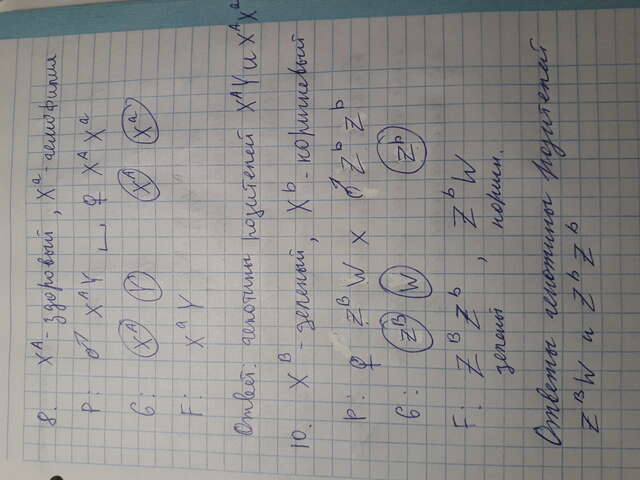 8. X^A - здоровый, X^a - гемофилия
P: ♂ X^A Y _ ♀ X^A X^a
G: X^A Y X^A X^a
F: X^a Y
Ответ: генотипы родителей X^A Y и X^A X^a
10. X^B - зеленый, X^b - коричневый
P: ♀ Z^B W x ♂ Z^b Z^b
G: Z^B W Z^b
F: Z^B Z^b, Z^b W
зелены коричн.
Ответы генотипы родителей
Z^B W и Z^b Z^b